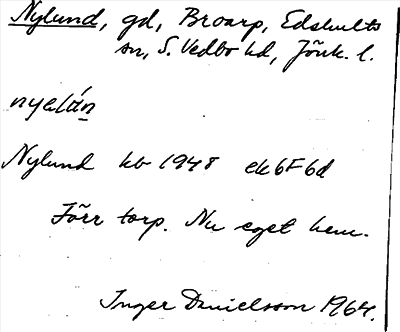 Nylund, gd, Broarp, Edshults
sn, S. Vedbo hd, Jönk. l.
nyelán
Nylund kb 1948 ek 6F 6d
Förr torp. Nu eget hem.
Inger Danielsson 1964.